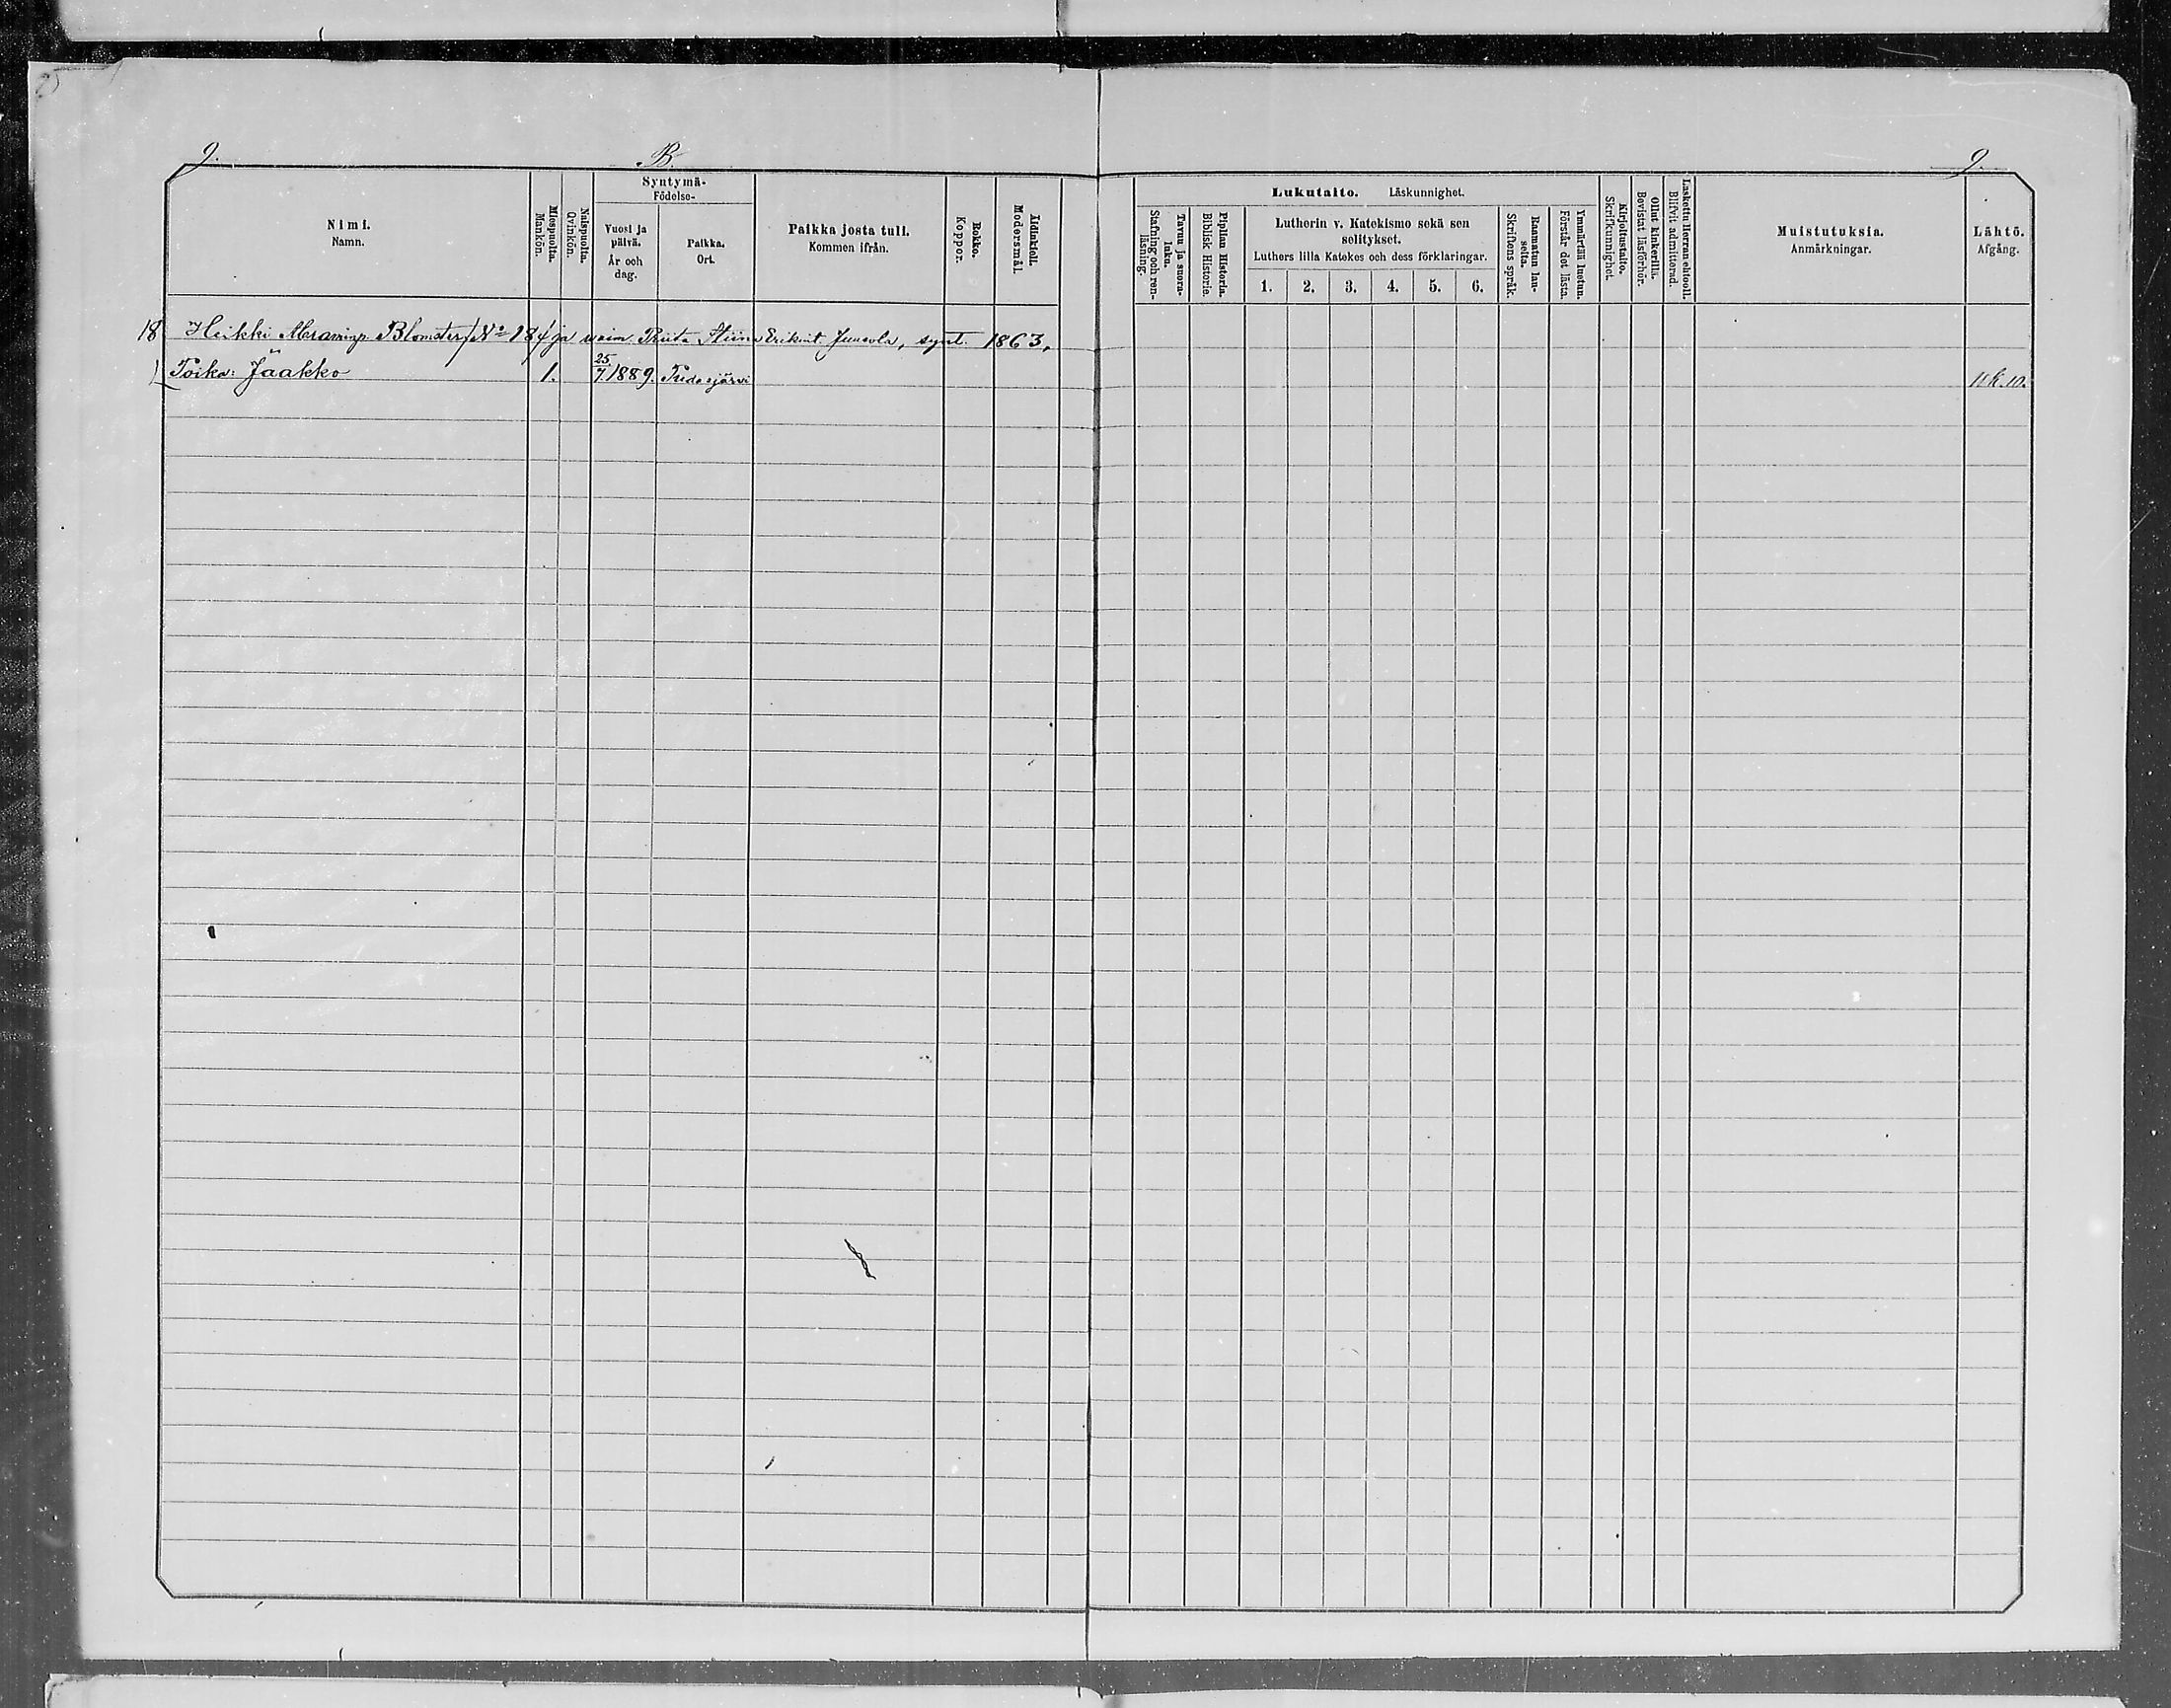 9. B. 9.
Nimi. Namn.
Miespuolta. Mankön.
Naispuolia. Qvinkön.
Syntymä- Födelse-
Vuosi ja päivä. År och dag.
Paikka. Ort.
Paikka josta tuli. Kommen ifrån.
Rokko. Koppor.
Äidinkieli. Modersmål.
Lukutaito. Läskunnighet.
Tavuu ja suora-luku. Stafning och ren-läsning.
Piplian Historia. Biblisk Historie.
Lutherin v. Katekismo sekä sen selitykset.
Luthers lilla Katekes och dess förklaringar.
1. 2. 3. 4. 5. 6.
Raamatun lau-seita. Skriftens språk.
Ymmärtää luetun. Förstår det lästa.
Kirjoitustaito. Skrifkunnighet.
Ollut kinkerillä. Bevistat läsförhör.
Laskettu Herran ehtooll. Blifvit admitterad.
Muistutuksia. Anmärkningar.
Lähtö. Afgång.
18 Heikki Abraminp. Blomster /No 18/ ja vaim. Riita Stiina Erikint. Junsola, synt. 1863,
Poika: Jaakko 1. 25/7 1889. Pudasjärvi 11 k. 10.